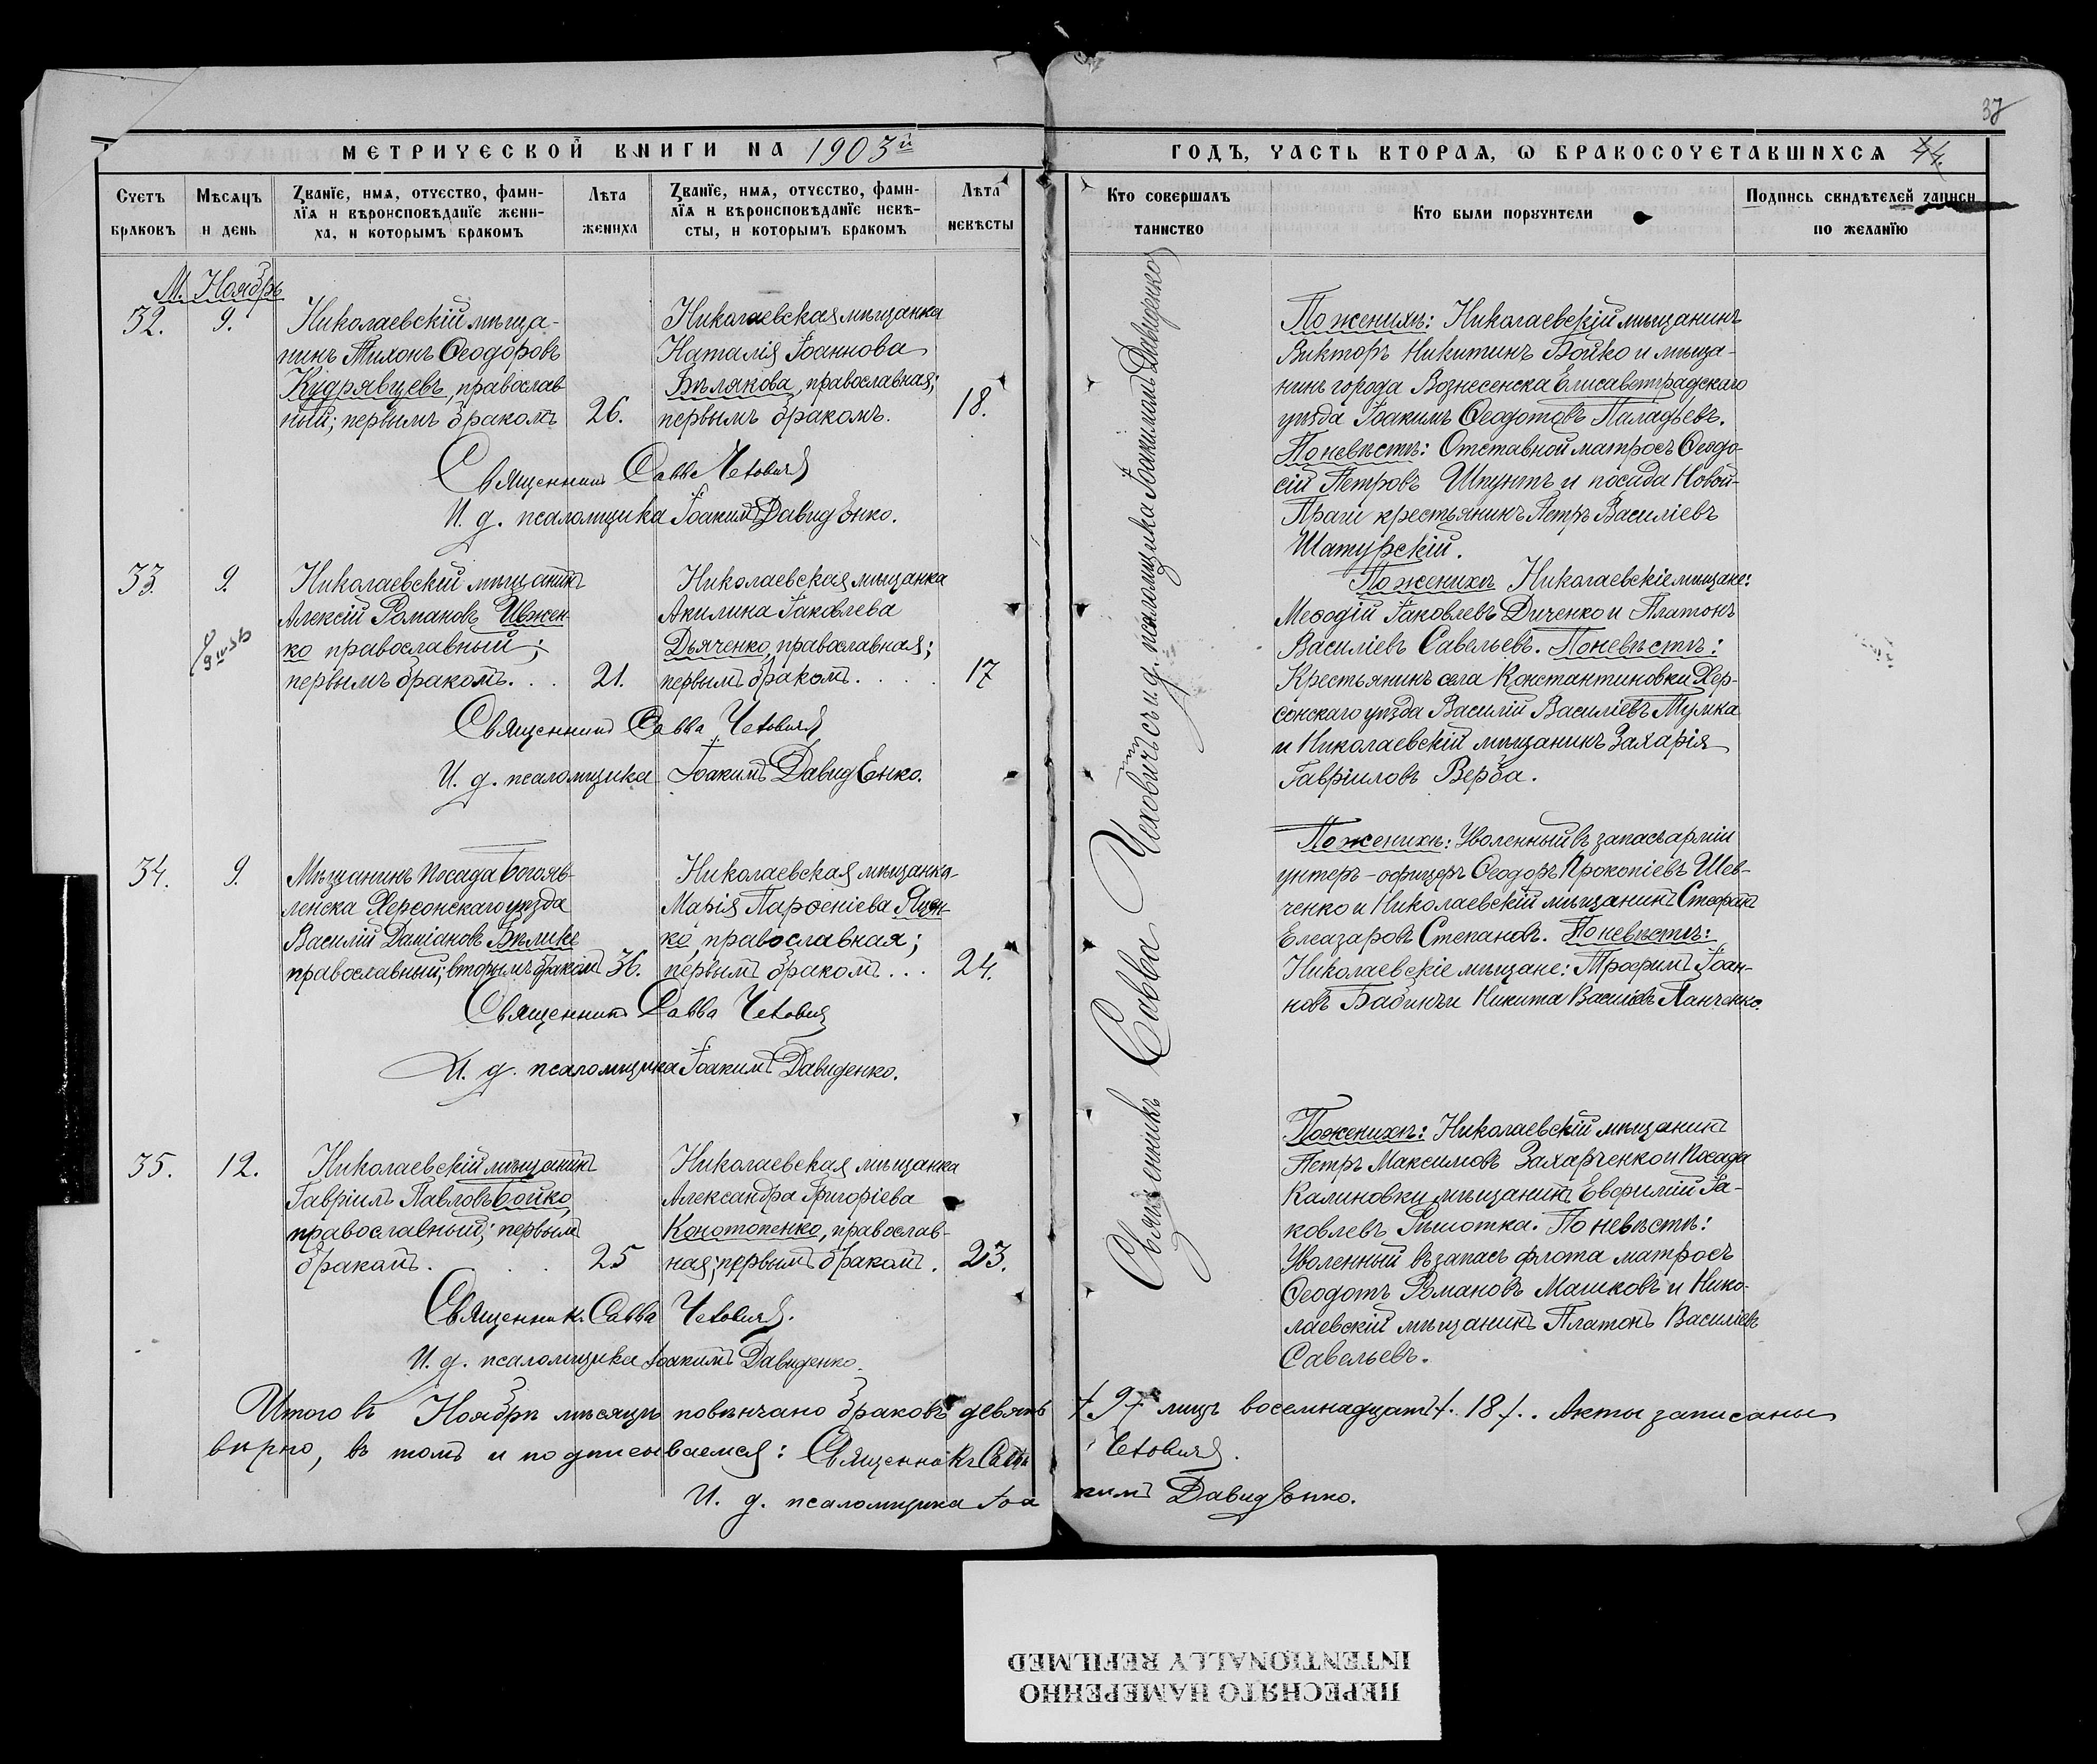 37
МЕТРИЧЕСКОЙ КНИГИ НА 1903й
ГОДЪ, ЧАСТЬ ВТОРАЯ, Ѡ БРАКОСОЧЕТАВШИХСЯ 44.
Счетъ браковъ
Мѣсяцъ и день
Званїе, имя, отчество, фами-
лїя и вѣроисповѣданїе жени-
ха, и которымъ бракомъ
Лѣта жениха
Званїе, имя, отчество, фами-
лїя и вѣроисповѣданїе невѣ-
сты, и которымъ бракомъ
Лѣта невѣсты
Кто совершалъ таинство
Кто были поручители
Подпись свидѣтелей записи
по желанїю
М. Ноябрь
32. 9.
Николаевскій мѣща-
нинъ Тихонъ Ѳеодоровъ
Кудрявцевъ, православ
ный; первымъ бракомъ 26.
Николаевская мѣщанка
Наталія Іоаннова
Бѣлякова, православная;
первымъ бракомъ. 18.
Священникъ Савва Чеховичъ
И. д. псаломщика Іоакимъ Давиденко.
По женихѣ: Николаевскій мѣщанинъ
Викторъ Никитинъ Бойко и мѣща-
нинъ города Вознесенска Елисаветградскаго
уѣзда Іоакимъ Ѳеодотовъ Паладьевъ.
По невѣстѣ: Отставной матросъ Ѳеодо-
сій Петровъ Шпунтъ и посада Новой-
Праги крестьянинъ Петръ Василіевъ
Шатурскій.
33. 9.
Николаевскій мѣщанинъ
Алексій Романовъ Ивжен-
ко православный;
первымъ бракомъ. . . 21.
Николаевская мѣщанка
Акилина Іаковлева
Дьяченко, православная;
первымъ бракомъ. . . . 17
Священникъ Савва Чеховичъ
И. д. псаломщика Іоакимъ Давиденко.
По женихѣ Николаевскіе мѣщане:
Меѳодій Іаковлевъ Диченко и Платонъ
Василіевъ Савельевъ. По невѣстѣ:
Крестьянинъ села Константиновки Хер-
сонскаго уѣзда Василій Василіевъ Мумка
и Николаевскій мѣщанинъ Захарія
Гавріиловъ Верба.
34. 9.
Мѣщанинъ посада Богояв-
ленска Херсонскаго уѣзда
Василій Даміановъ Бѣлике
православный; вторымъ бракомъ 36.
Николаевская мѣщанка
Марія Парѳеніева Яцен-
ко, православная;
первымъ бракомъ. . . 24.
Священникъ Савва Чеховичъ
И. д. псаломщика Іоакимъ Давиденко.
По женихѣ: Уволенный въ запасъ арміи
унтеръ-офицеръ Ѳеодоръ Прокопіевъ Шев-
ченко и Николаевскій мѣщанинъ Стефанъ
Елеазаровъ Степановъ. По невѣстѣ:
Николаевскіе мѣщане: Трофимъ Іоан-
новъ Бабинъ и Никита Василіевъ Панченко.
35. 12.
Николаевскій мѣщанинъ
Гавріилъ Павловъ Бойко,
православный; первымъ
бракомъ. . . 25
Николаевская мѣщанка
Александра Григоріева
Конотопенко, православ-
ная; первымъ бракомъ. 23.
Священникъ Савва Чеховичъ.
И. д. псаломщика Іоакимъ Давиденко.
По женихѣ: Николаевскій мѣщанинъ
Петръ Максимовъ Захарченко и посада
Калиновки мѣщанинъ Евфимій Іа-
ковлевъ. По невѣстѣ:
Уволенный въ запасъ флота матросъ
Ѳеодотъ Романовъ Машковъ и Нико-
лаевскій мѣщанинъ Платонъ Василіевъ
Савельевъ.
Священникъ Савва Чеховичъ съ и. д. псаломщика Іоакимомъ Давиденко
Итого въ Ноябрѣ мѣсяцѣ повѣнчано браковъ девять /9/ лицъ восемнадцать /. 18 /. . Акты записаны
вѣрно, въ томъ и подписываемся: Священникъ Савва Чеховичъ.
И. д. псаломщика Іоакимъ Давиденко.
ПЕРЕСНЯТО НАМЕРЕННО
INTENTIONALLY REFILMED